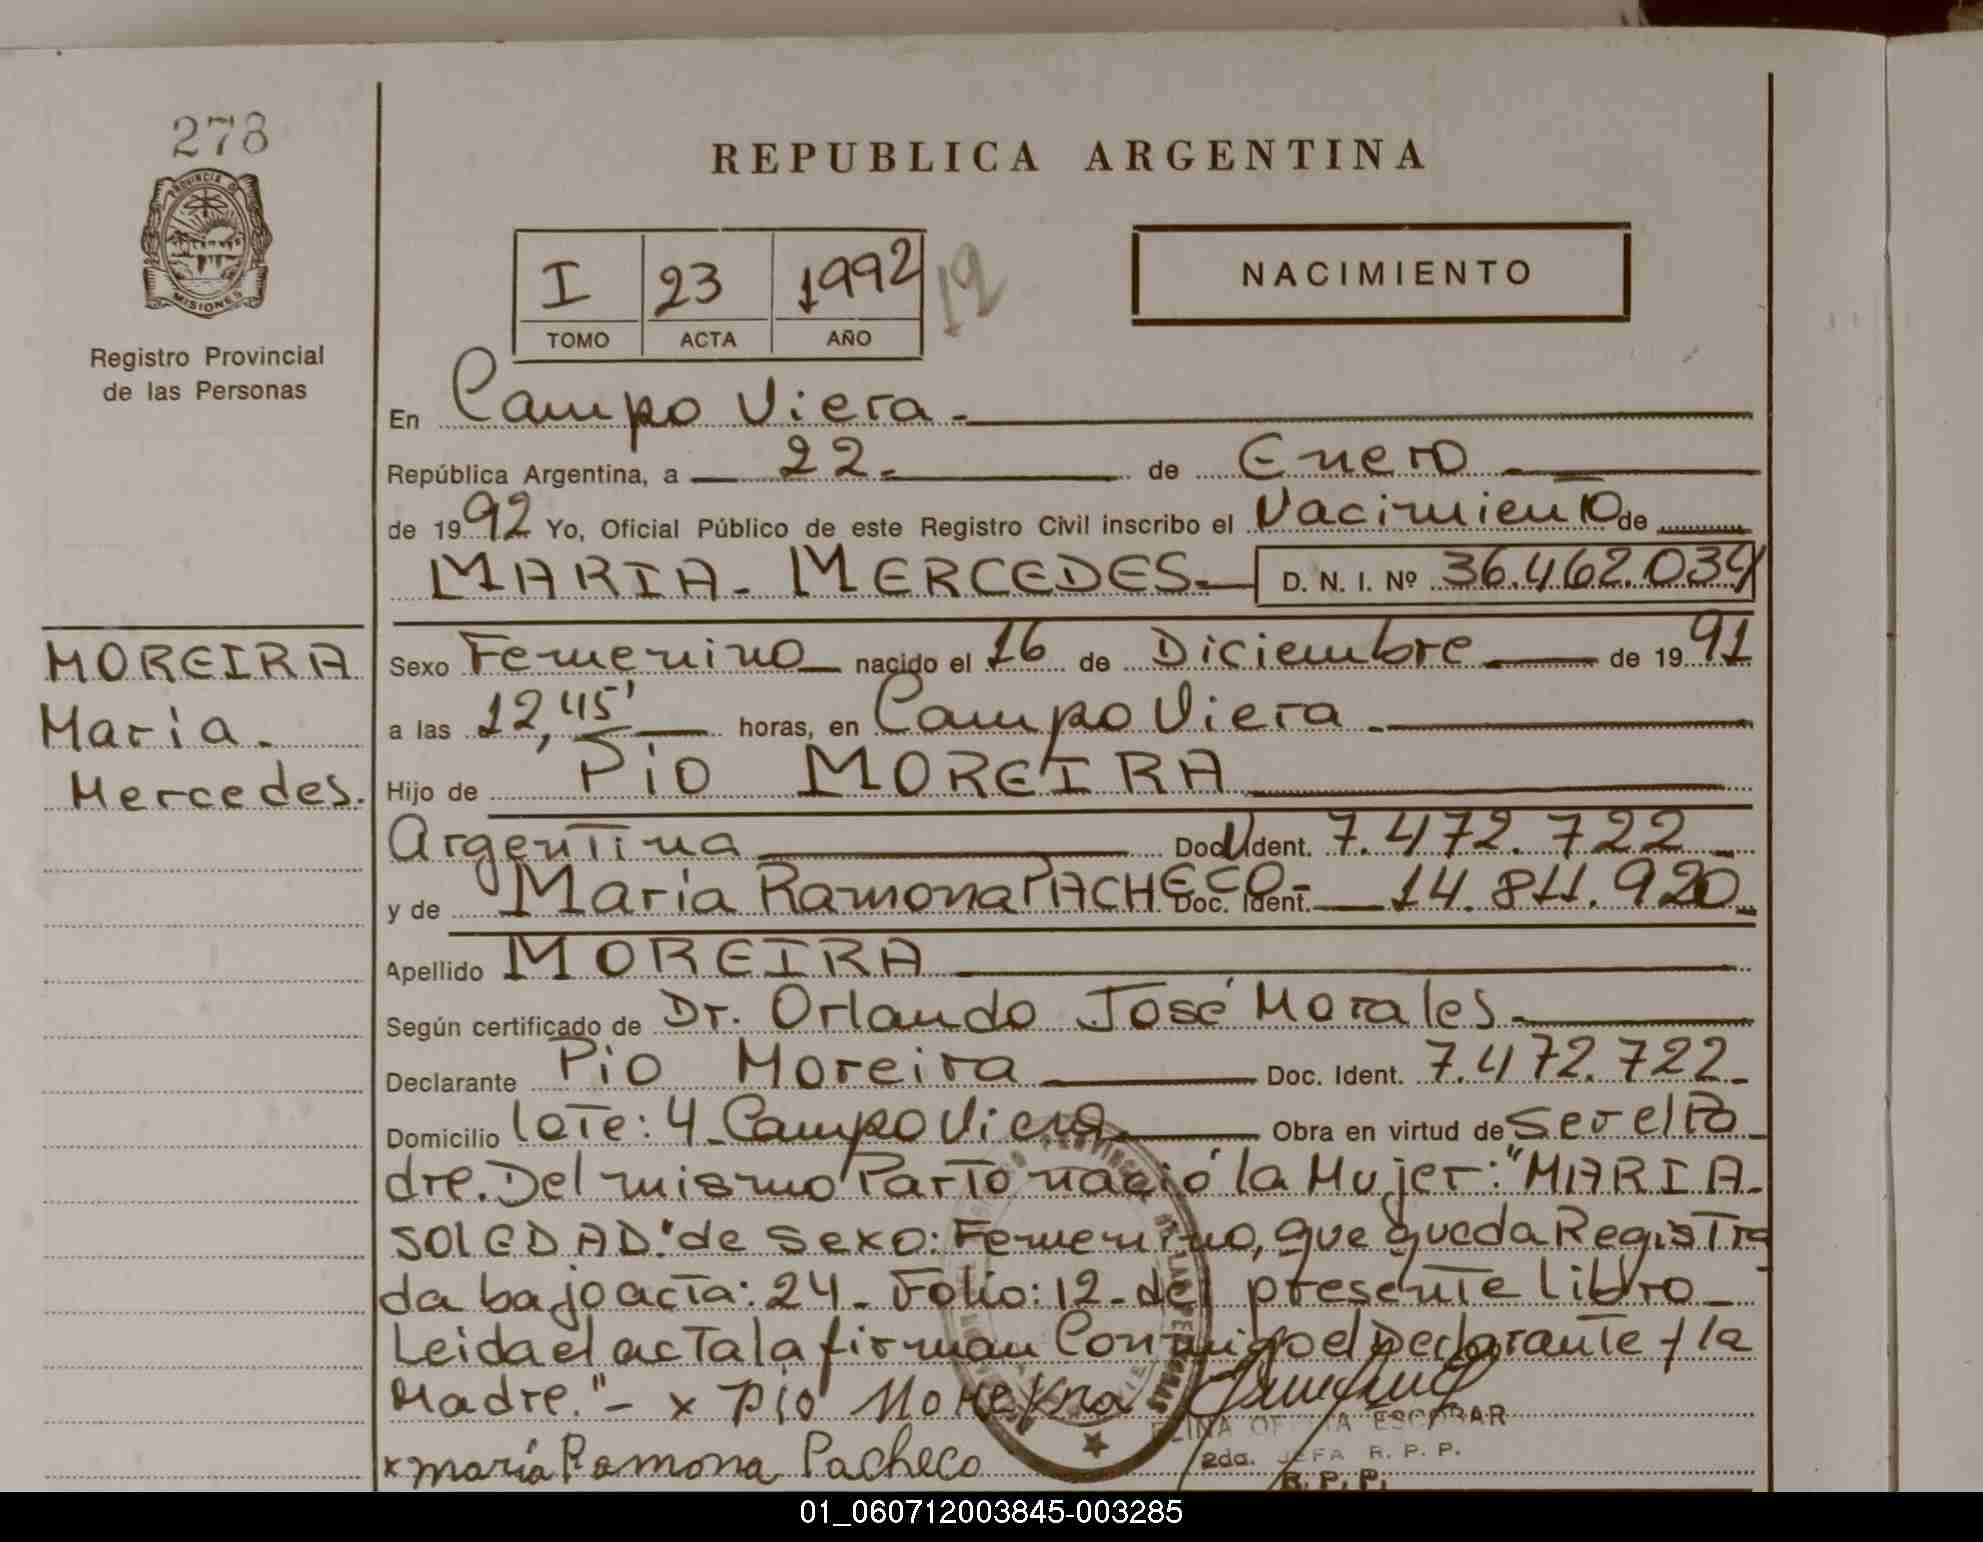 278
PROVINCIA DE
MISIONES
Registro Provincial
de las Personas
REPUBLICA ARGENTINA
I 23 1992 12
TOMO ACTA AÑO
NACIMIENTO
En Campo Viera.-
República Argentina, a 22.- de Enero
de 1992 Yo, Oficial Público de este Registro Civil inscribo el Nacimiento de
MARIA- MERCEDES.- D. N. I. Nº 36.462.034
MOREIRA
Maria-
Mercedes.
Sexo Femenino nacido el 16 de Diciembre de 1991
a las 12,45' horas, en Campo Viera.-
Hijo de Pio MOREIRA
Argentina Doc. Ident. 7.472.722
y de Maria Ramona PACHECO.- Doc. Ident. 14.811.920
Apellido MOREIRA
Según certificado de Dr. Orlando José Morales.-
Declarante Pio Moreira Doc. Ident. 7.472.722.-
Domicilio lote: 4- Campo Viera Obra en virtud de ser el Pa
dre. Del mismo Parto nació la Mujer: "MARIA-
SOLEDAD" de sexo: Femenino, que queda Registra
da bajo acta: 24- Folio: 12- del presente libro-
Leida el acta la firman Conmigo el Declarante y la
Madre."- x Pio Moreyra
x maria Ramona Pacheco
ESCOBAR
2da. JEFA R. P. P.
R. P. P.
01_060712003845-003285